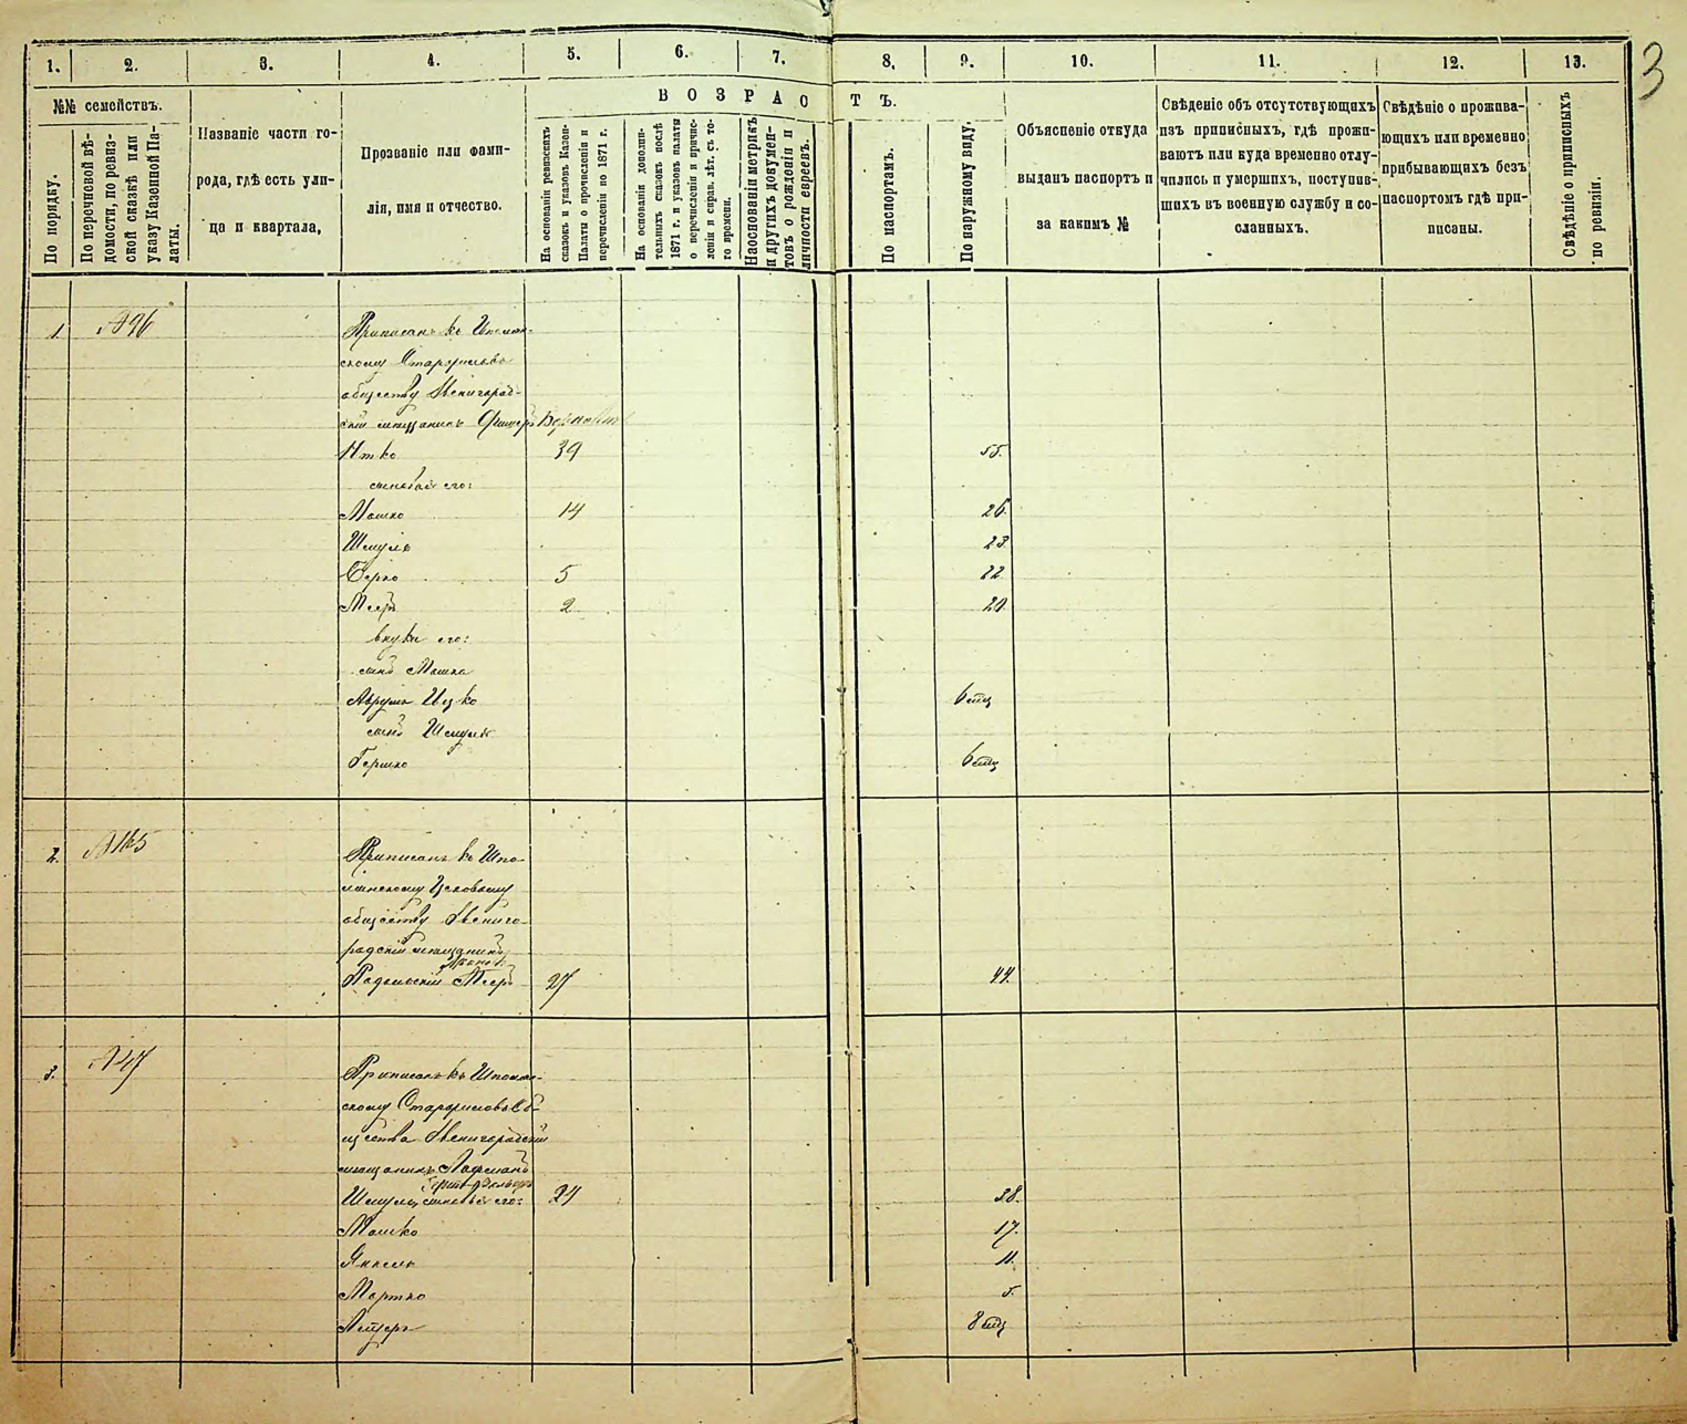 3
1. 2. 3. 4. 5. 6. 7. 8. 9. 10. 11. 12. 13.
№№ семействъ.
По порядку.
По перечневой вѣ-
домости, по ревиз-
ской сказкѣ или
указу Казенной Па-
латы.
Названіе части го-
рода, гдѣ есть ули-
ца и квартала,
Прозваніе или фами-
лія, имя и отчество.
ВОЗРАСТЪ.
На основаніи ревизскихъ
сказокъ и указовъ Казен.
Палаты о причисленіи и
перечисленіи по 1871 г.
На основаніи дополни-
тельныхъ сказокъ послѣ
1871 г. и указовъ палаты
о перечисленіи и причис-
леніи и справ. лѣт. съ то-
го времени.
На основаніи метрикъ
и другихъ докумен-
товъ о рожденіи и
личности евреевъ.
По паспортамъ.
По наружному виду.
Объясненіе откуда
выданъ паспортъ и
за какимъ №
Свѣденіе объ отсутствующихъ
изъ приписныхъ, гдѣ прожи-
ваютъ или куда временно отлу-
чились и умершихъ, поступив-
шихъ въ военную службу и со-
сланныхъ.
Свѣдѣніе о прожива-
ющихъ или временно
прибывающихъ безъ
паспортомъ гдѣ при-
писаны.
Свѣдѣніе о приписныхъ
по ревизіи.
1. №96 Приписанъ къ Шполян-
скому
обществу Звенигород-
скій мѣщанинъ
Итко 39 55.
сыновья его:
Мошко 14 26.
Шмуль 23.
Берко 5 22
Мееръ 2 20.
внуки его:
сынъ Мошка
Аврумъ Ицко 6 мѣц
сынъ Шмуля
Гершко 6 мѣц
2. Приписанъ къ Шпо-
лянскому
обществу Звениго-
родскій мѣщанинъ
Мееръ 27 44.
3. №47 Приписанъ къ Шполян-
скому об-
щества Звенигородскій
мѣщанинъ
Шмуль, сыновья его: 24 38.
Мошко 17.
Янкель 11.
Мортко 5.
Лейзеръ 8 мѣц